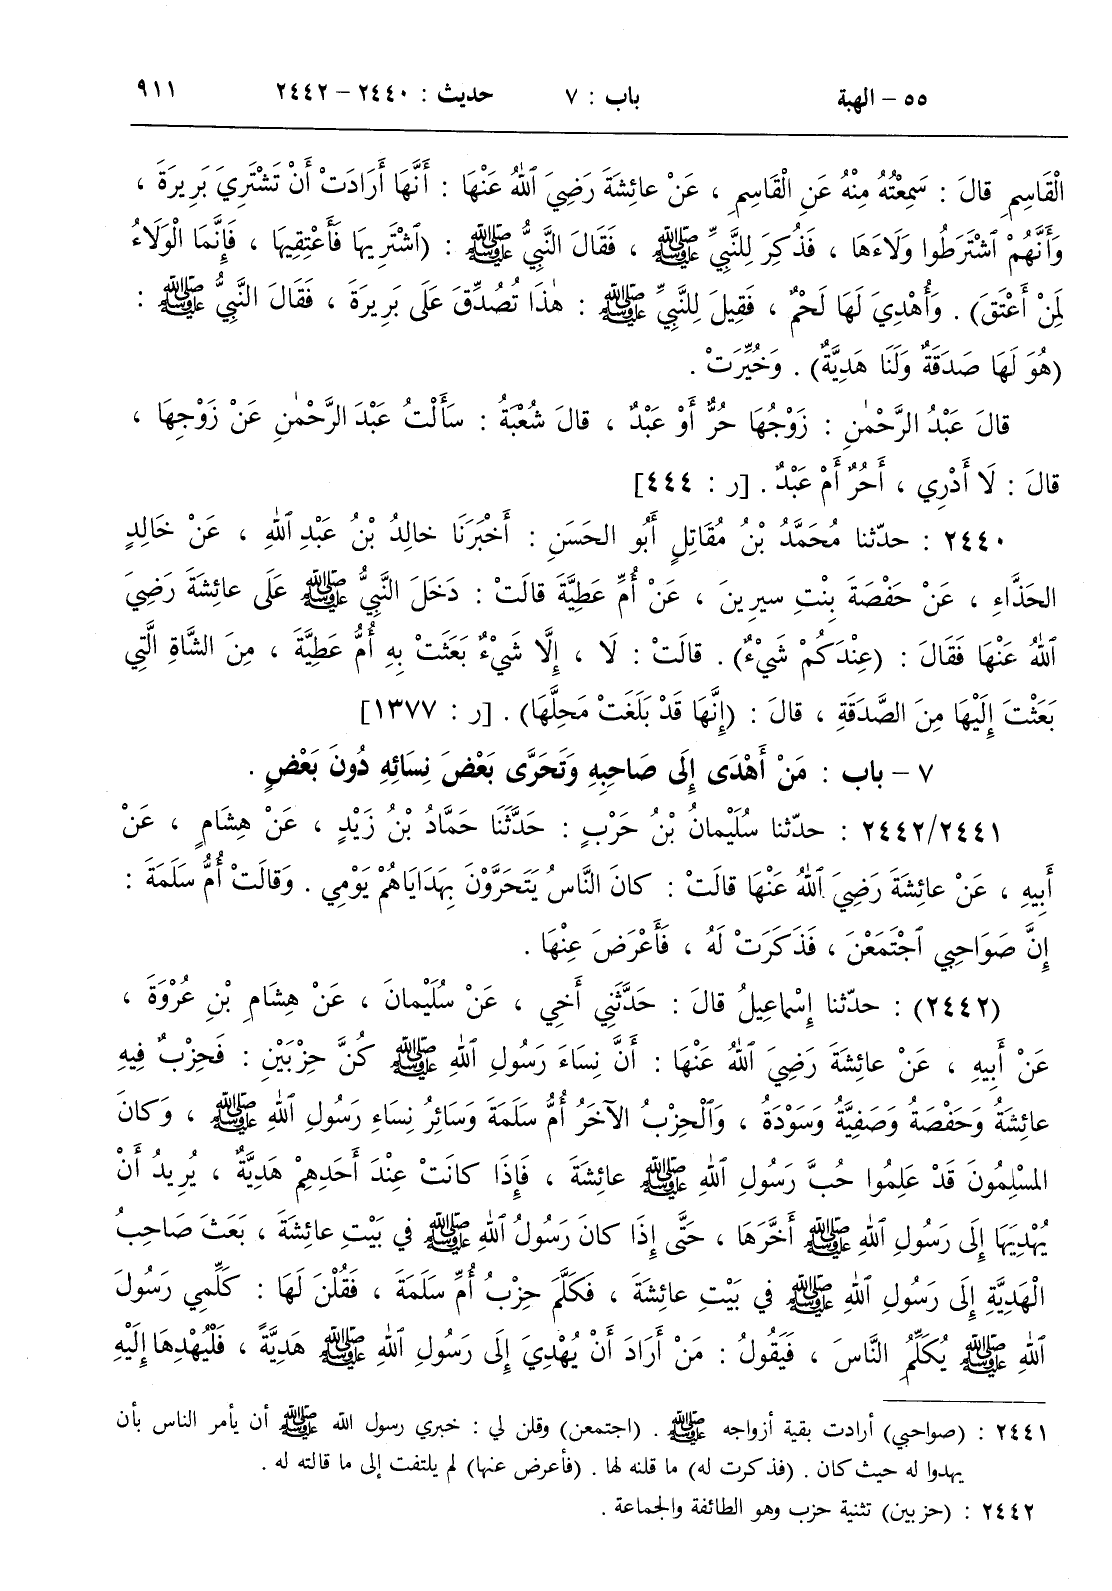 ٥٥ - الهبة باب : ٧ حديث : ٢٤٤٠ - ٢٤٤٢ ٩١١
الْقَاسِمِ قالَ : سَمِعْتُهُ مِنْهُ عَنِ الْقَاسِمِ ، عَنْ عائِشَةَ رَضِيَ ٱللهُ عَنْهَا : أَنَّهَا أَرَادَتْ أَنْ تَشْتَرِيَ بَرِيرَةَ ،
وَأَنَّهُمُ ٱشْتَرَطُوا وَلَاءَهَا ، فَذُكِرَ لِلنَّبِيِّ ﷺ ، فَقَالَ النَّبِيُّ ﷺ : (ٱشْتَرِيهَا فَأَعْتِقِيهَا ، فَإِنَّمَا الْوَلَاءُ
لِمَنْ أَعْتَقَ) . وَأُهْدِيَ لَهَا لَحْمٌ ، فَقِيلَ لِلنَّبِيِّ ﷺ : هٰذَا تُصُدِّقَ عَلَى بَرِيرَةَ ، فَقَالَ النَّبِيُّ ﷺ :
(هُوَ لَهَا صَدَقَةٌ وَلَنَا هَدِيَّةٌ) . وَخُيِّرَتْ .
قالَ عَبْدُ الرَّحْمٰنِ : زَوْجُهَا حُرٌّ أَوْ عَبْدٌ ، قالَ شُعْبَةُ : سَأَلْتُ عَبْدَ الرَّحْمٰنِ عَنْ زَوْجِهَا ،
قالَ : لَا أَدْرِي ، أَحُرٌّ أَمْ عَبْدٌ . [ر : ٤٤٤]
٢٤٤٠ : حدّثنا مُحَمَّدُ بْنُ مُقَاتِلٍ أَبُو الحَسَنِ : أَخْبَرَنَا خالِدُ بْنُ عَبْدِ ٱللهِ ، عَنْ خَالِدٍ
الحَذَّاءِ ، عَنْ حَفْصَةَ بِنْتِ سِيرِينَ ، عَنْ أُمِّ عَطِيَّةَ قالَتْ : دَخَلَ النَّبِيُّ ﷺ عَلَى عائِشَةَ رَضِيَ
ٱللهُ عَنْهَا فَقَالَ : (عِنْدَكُمْ شَيْءٌ) . قالَتْ : لَا ، إِلَّا شَيْءٌ بَعَثَتْ بِهِ أُمُّ عَطِيَّةَ ، مِنَ الشَّاةِ الَّتِي
بَعَثْتَ إِلَيْهَا مِنَ الصَّدَقَةِ ، قالَ : (إِنَّهَا قَدْ بَلَغَتْ مَحِلَّهَا) . [ر : ١٣٧٧]
٧ - باب : مَنْ أَهْدَى إِلَى صَاحِبِهِ وَتَحَرَّى بَعْضَ نِسَائِهِ دُونَ بَعْضٍ .
٢٤٤٢/٢٤٤١ : حدّثنا سُلَيْمانُ بْنُ حَرْبٍ : حَدَّثَنَا حَمَّادُ بْنُ زَيْدٍ ، عَنْ هِشَامٍ ، عَنْ
أَبِيهِ ، عَنْ عائِشَةَ رَضِيَ ٱللهُ عَنْهَا قالَتْ : كانَ النَّاسُ يَتَحَرَّوْنَ بِهَدَايَاهُمْ يَوْمِي . وَقالَتْ أُمُّ سَلَمَةَ :
إِنَّ صَوَاحِبِي ٱجْتَمَعْنَ ، فَذَكَرَتْ لَهُ ، فَأَعْرَضَ عَنْهَا .
(٢٤٤٢) : حدّثنا إِسْماعِيلُ قالَ : حَدَّثَنِي أَخِي ، عَنْ سُلَيْمانَ ، عَنْ هِشَامِ بْنِ عُرْوَةَ ،
عَنْ أَبِيهِ ، عَنْ عائِشَةَ رَضِيَ ٱللهُ عَنْهَا : أَنَّ نِسَاءَ رَسُولِ ٱللهِ ﷺ كُنَّ حِزْبَيْنِ : فَحِزْبٌ فِيهِ
عائِشَةُ وَحَفْصَةُ وَصَفِيَّةُ وَسَوْدَةُ ، وَٱلْحِزْبُ الآخَرُ أُمُّ سَلَمَةَ وَسَائِرُ نِسَاءِ رَسُولِ ٱللهِ ﷺ ، وَكانَ
المسْلِمُونَ قَدْ عَلِمُوا حُبَّ رَسُولِ ٱللهِ ﷺ عائِشَةَ ، فَإِذَا كانَتْ عِنْدَ أَحَدِهِمْ هَدِيَّةٌ ، يُرِيدُ أَنْ
يُهْدِيَهَا إِلَى رَسُولِ ٱللهِ ﷺ أَخَّرَهَا ، حَتَّى إِذَا كانَ رَسُولُ ٱللهِ ﷺ في بَيْتِ عائِشَةَ ، بَعَثَ صَاحِبُ
الْهَدِيَّةِ إِلَى رَسُولِ ٱللهِ ﷺ في بَيْتِ عائِشَةَ ، فَكَلَّمَ حِزْبُ أُمِّ سَلَمَةَ ، فَقُلْنَ لَهَا : كَلِّمِي رَسُولَ
ٱللهِ ﷺ يُكَلِّمُ النَّاسَ ، فَيَقُولُ : مَنْ أَرَادَ أَنْ يُهْدِيَ إِلَى رَسُولِ ٱللهِ ﷺ هَدِيَّةً ، فَلْيُهْدِهَا إِلَيْهِ
٢٤٤١ : (صواحبي) أرادت بقية أزواجه ﷺ . (اجتمعن) وقلن لي : خبري رسول الله ﷺ أن يأمر الناس بأن
يهدوا له حيث كان . (فذكرت له) ما قلنه لها . (فأعرض عنها) لم يلتفت إلى ما قالته له .
٢٤٤٢ : (حزبين) تثنية حزب وهو الطائفة والجماعة .